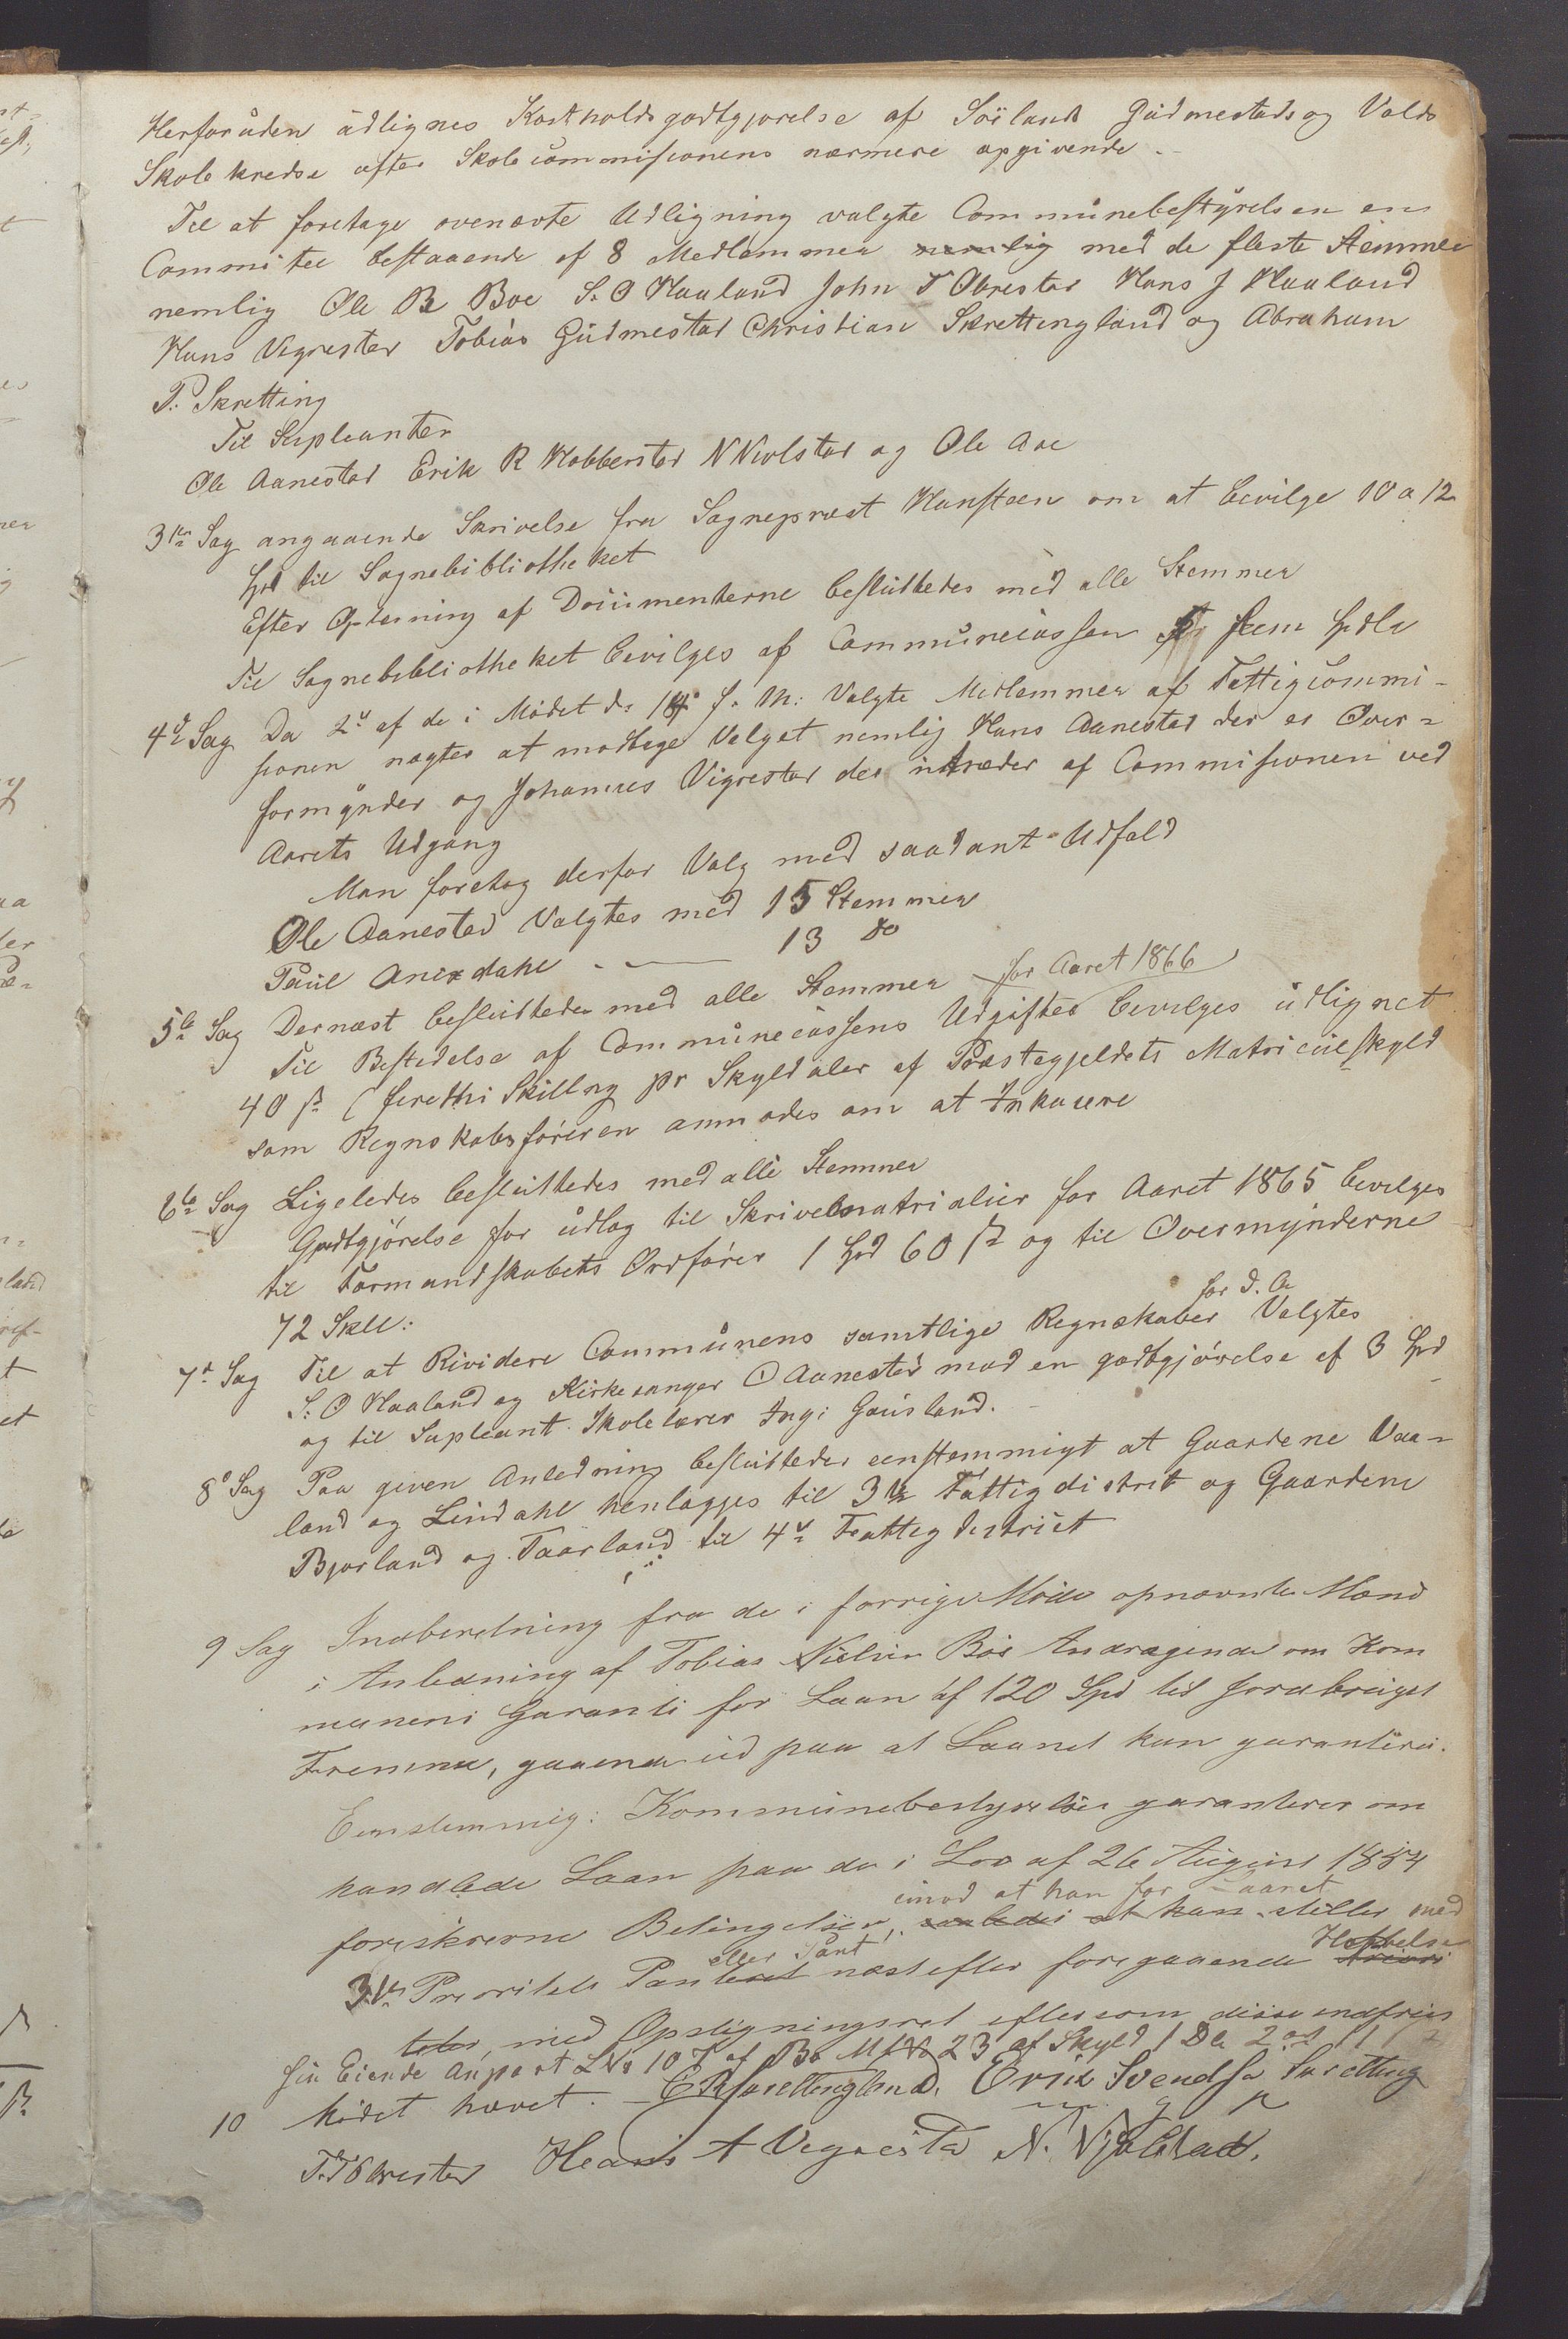 Herforuden udlignes Kostholdsgodtgjorelse af Söiland Gudmestads og Volds
Skolekredse efter Skolecommissionens nærmere opgivende.
Til at foretage ovenævte Udligning valgte Communebestyrelsen en
Committee bestaaende af 8 Medlemmer nemlig med de fleste Stemmer
nemlig Ole B Boe S. O Haaland John T Obrestad Hans J Haaland
Hans Vigrestad Tobias Gudmestad Christian Skrettingland og Abraham
P. Skretting
Til Supleanter
Ole Aanestad Erik R Hobberstad N Niolstad og Ole Aae
3die Sag angaaende Skrivelse fra Sognepræst Hansteen om at bevilge 10 a 12
Spd til Sognebibliotheket
Efter Oplesning af Documenterne besluttedes med alle Stemmer
Til Sognebibliotheket bevilges af Communecassen fem Spdlr
4de Sag Da 2de af de i Mödet d: 14 f. M: Valgte Medlemmer af Fattigcommi-
sionen nægter at modtage Valget nemlig Hans Aanestad der er Over-
formynder og Johannes Vigrestad der udtræder af Commissionen ved
Aarets Udgang
Man foretog derfor Valg med saadant Udfald
Ole Aanestad Valgtes med 15 Stemmer
Paul Anixdahl - — 13 do
5te Sag Dernæst besluttedes med alle Stemmer for Aaret 1866
Til Bestridelse af Communecassens Udgifter bevilges udlignet
40 s (fireti Skilling pr Skylddaler af Præstegjeldets Matriculskyld
som Regnskabsföreren anmodes om at Inkasere
6te Sag Ligeledes besluttedes med alle Stemmer
Godtgjörelse for udlag til Skrivematrialier for Aaret 1865 bevilges
til Formandskabets Ordförer 1 Spd 60 s og til Overmynderne
72 Skll:
for d. A
7de Sag Til at Rividere Communens samtlige Regnskaber Valgtes
S. O Haaland og Kirkesanger O Aanestad mod en godtgjörelse af 3 Spd
og til Supleant Skolelærer Ing: Gausland.
8de Sag Paa given Anledning besluttedes eenstemmigt at Gaardene Vaa-
land og Lindahl henlægges til 3die Fattigdistrit og Gaardene
Bjorland og Taarland til 4de Fattigdistrict
9 Sag Indberetning fra de i forrige Möde opnævnte Mænd
i Anledning af Tobias Nielsen Böes Andragende om Kom
munens Garanti for Laan af 120 Spd til Jordbrugets
Fremme, gaaende ud paa at Laanet kan garanteres.
Eenstemmig: Kommunebestyrelsen garanterer om
handlede Laan paa de i Lov af 26 August 1854
imod at han for Laanet
foreskrevne Betingelser, saaledes at han stilles med
eller Pant Heftelse
3die Prioritets Panteret næst efter foregaaende
teter, med Opstigningsret eftersom disse indfries
sin Eiende Anpart LNo 107 af Bö MNo 23 af Skyld 1 Dlr 2 ort 11
10 Mödet hævet. ERSkrettingland. Erik Svendsen Skretting
T. T Obrestad Hans A Vegrestad N. Njolstad.